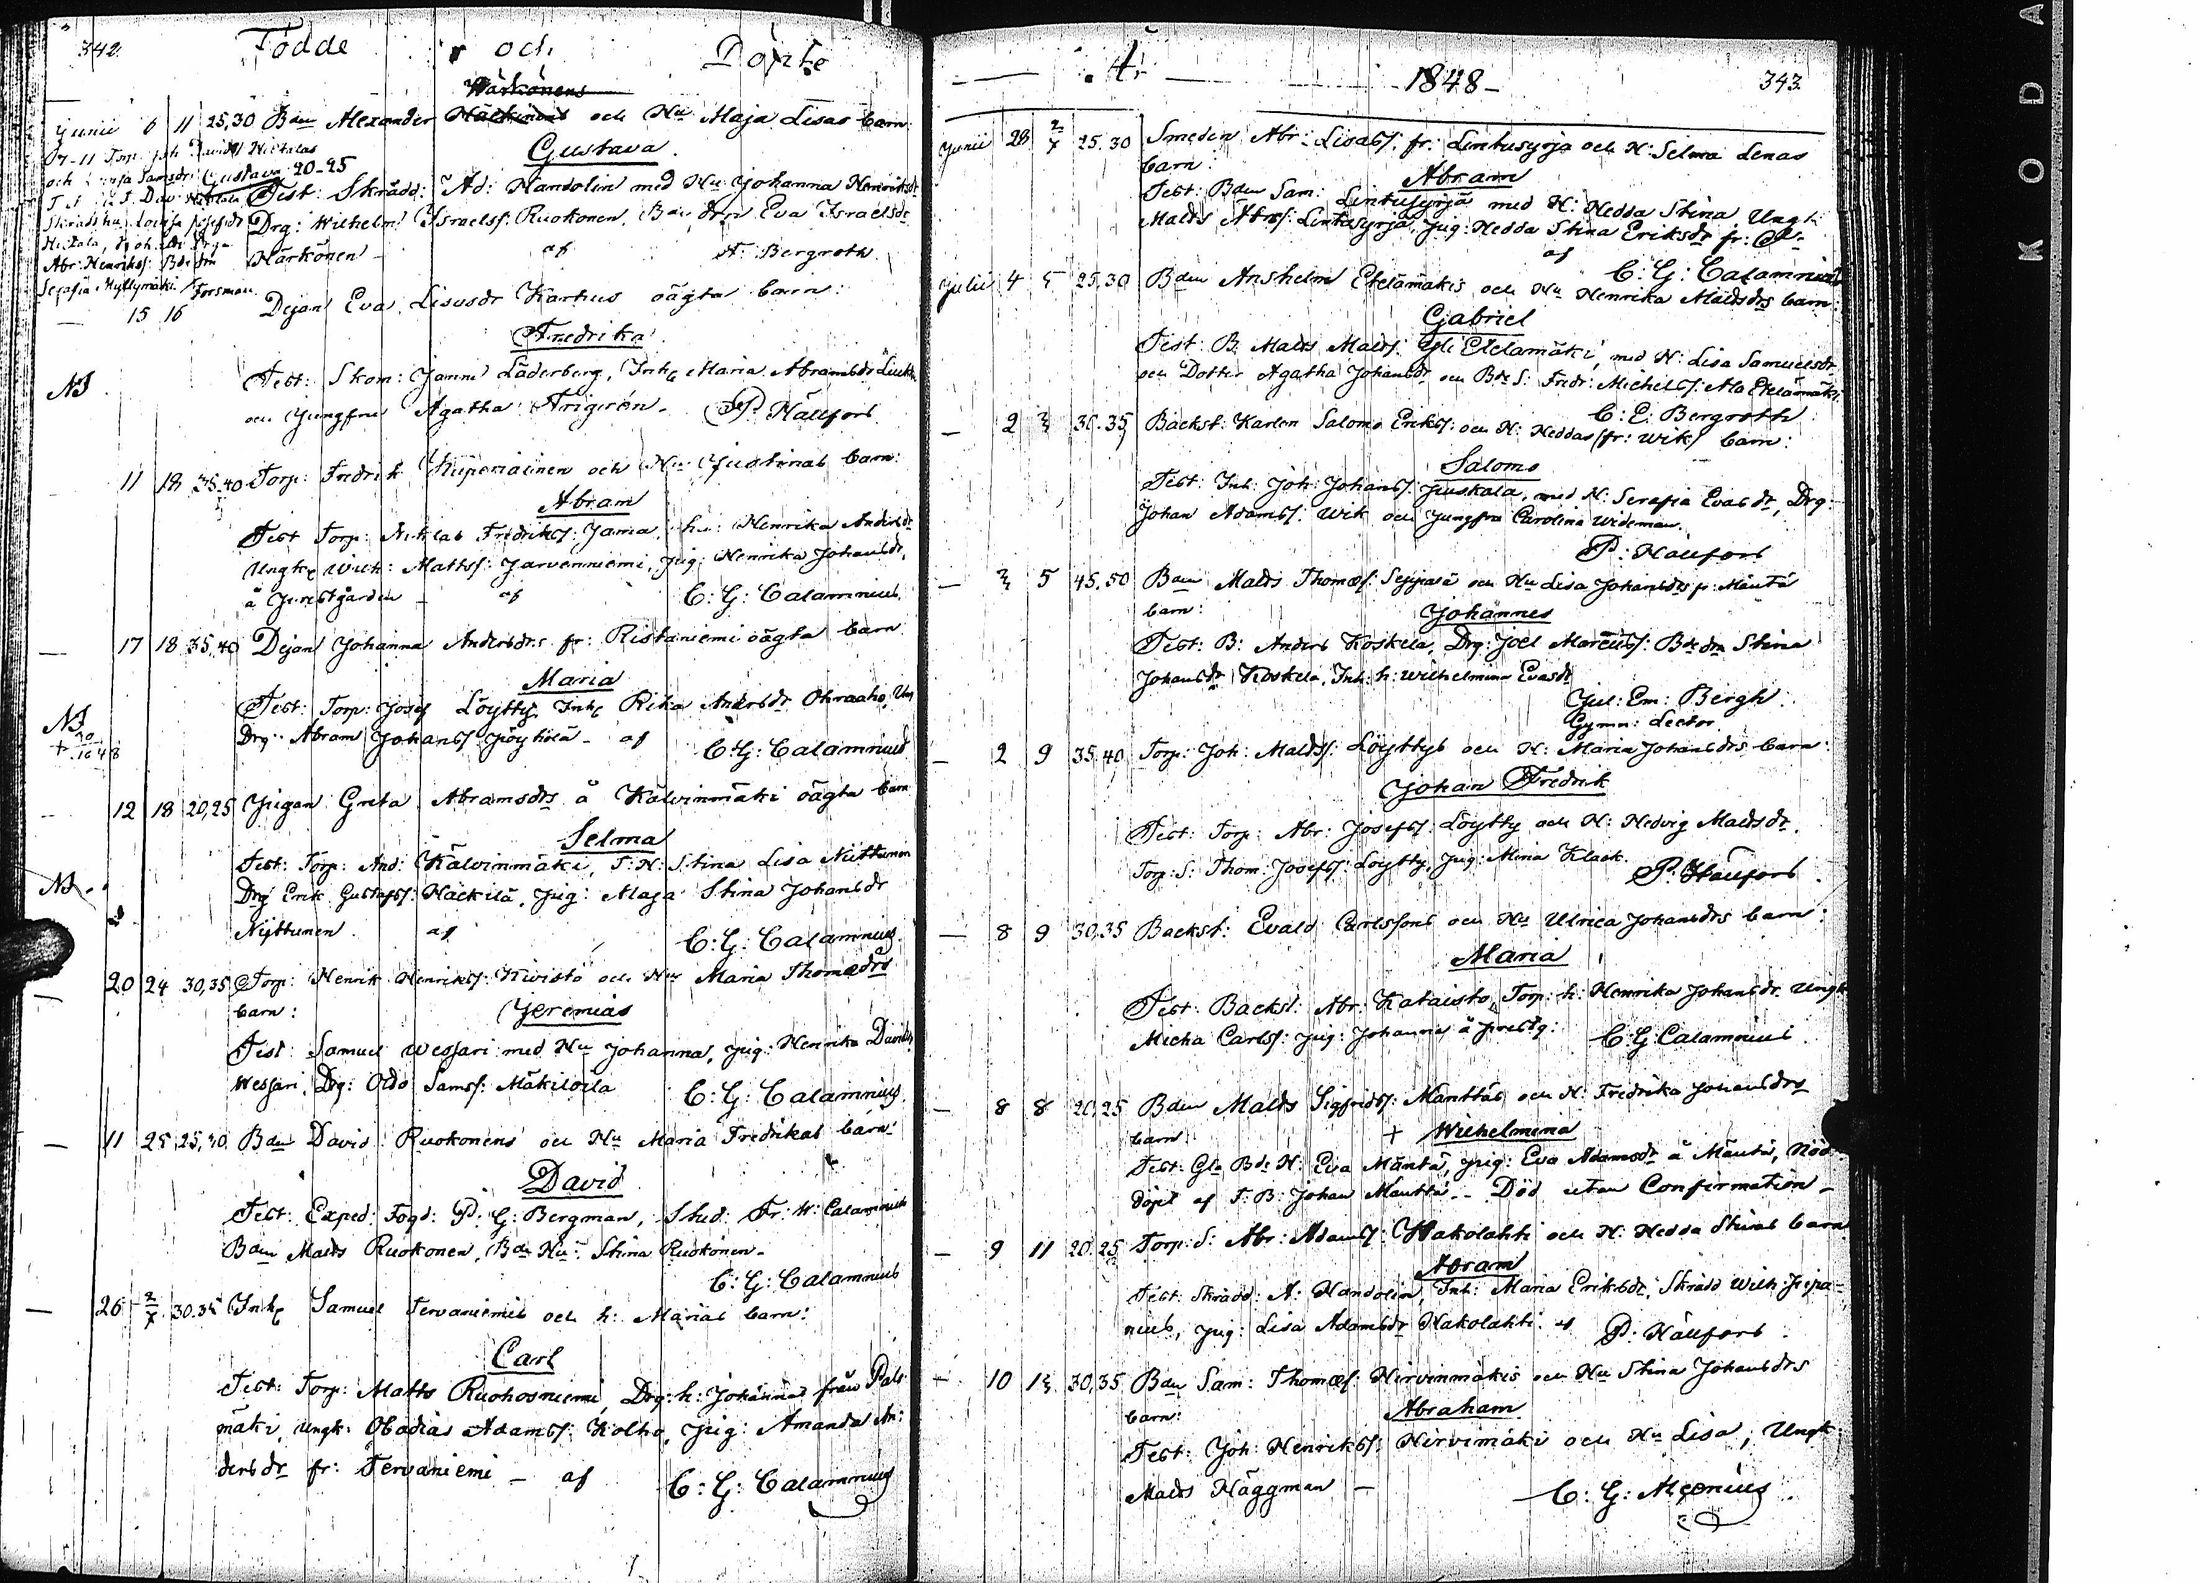 342. Födde och Döpte
Härkönens
Junii 6 11 25,30 Bden Alexander och Hu Maja Lisas barn:
Gustava
Test: Skrädd: Ad: Handolin med Hu Johanna Henriksdr
Drg: Wilhelm Israelss: Ruokonen, Bde drn Eva Israelsdr
Härkönen af A. Bergroth
och Gustava 20-25
Abr: Henrikss: Bde drn
Serafia Myllymäki / Forsman
— 15 16 Pigan Eva Lisusdr Karhus oägta barn:
Fredrika
Test: Skom: Janne Läderberg, Inh Maria Abramsdr
och Jungfru Agatha Arigrén. P. Hällfors
11 18 35,40 Torp: Fredrik och Hu Justinas barn:
Abram
Test Torp: Niklas Fredrikss: Jama, hu: Henrika Andersdr
Ungk Wilh: Mattss: Jarvenniemi, Pig: Henrika Johansdr,
å Prestgården — af C: G: Calamnius
— 17 18 35,40 Pigan Johanna Andersdrs fr: Ristaniemi oägta barn
Maria
Test: Torp: Josef Löytty, Inh Rika Andersdr Ohraaho,
Drg: Abram Johanss Pöyhölä — af C: G: Calamnius
12 18 20,25 Pigan Greta Abramsdrs å Kälvinmäki oägta barn
Selma
Test: Torp: And: Kälvinmäki, T: H: Stina Lisa Nittumen
Drg Erik Gustafss: Häckilä, Pig: Maja Stina Johansdr
Nyttumen. af C: G: Calamnius.
— 20 24 30,35 Torp: Henrik Henrikss: Kivistö och Hu Maria Thomædrs
barn: Jeremias
Test: Samuel Wessari med Hu Johanna, Pig: Henrika Davidsdr
Wessari, Drg: Otto Samss: Mäkiloila C: G: Calamnius.
— 11 25 25,30 Bden David Ruokonens och Hu Maria Fredrikas barn:
David
Test: Exped: Fogd: P: G: Bergman, Stud: Fr: W: Calamnius
Bden Matts Ruokonen, Bde Hu: Stina Ruokonen—
C: G: Calamnius
— 26 2/7 30.35 Inh Samuel Tervaniemis och h: Marias barn:
Carl
Test: Torp: Matts Ruohosniemi, Drg: h: Johanna från Pals
mäki, Ungk: Obadias Adamss: Kolho, Pig: Amanda An:
dersdr fr: Tervaniemi — af C: G: Calamnius
1848— 343.
Junii 28 2/7 25.30 Smeden Abr: Lisass: fr: Lintusyrjä och H: Selma Lenas
barn: Abram
Test: Bden Sam: Lintusyrjä med H: Hedda Stina Ungk:
Matts Abrss: Lintusyrjä, Pig: Hedda Stina Eriksdr fr:
af C: G: Calamnius
Julii 4 5 25,30 Bden Anshelm Etelämäkis och Hu Henrika Mattsdrs barn:
Gabriel
Test: B: Matts Mattss: Yli Etelämäki, med H: Lisa Samuelsdr
och Dotter Agatha Johansdr och Bde S: Fredr: Michelss: Ala Etelämäki
C: E: Bergroth
— 2 3 30.35 Backst: Karlen Salomo Erikss: och H: Heddas (fr: Wik) barn:
Salomo
Test: Inh: Joh: Johanss: Juuskala, med H: Serafia Evasdr, Drg:
Johan Adamss: Wik och Jungfru Carolina Wideman.
P: Hällfors
— 3 5 45.50 Bden Matts Thomæs: Seppälä och Hu Lisa Johansdrs fr: Mänttä
barn: Johannes
Test: B: Anders Koskela, Drg: Joel Marcuss: Bde drn Stina
Johansdr Koskela, Inh: h: Wilhelmina Evasdr
Jul: Em: Bergh
Gymn: Lector
— 2 9 35,40 Torp: Joh: Mattss: Löyttys och H: Maria Johansdrs barn:
Johan Fredrik
Test: Torp: Abr: Josefss: Löytty och H: Hedvig Mattsdr
Torp: S: Thom: Josefss: Löytty, Pig: Mina Klack. P. Hällfors.
— 8 9 30,35 Backst: Evald Carlssons och Hu Ulrica Johansdrs barn:
Maria
Test: Backst: Abr: Kataisto, Torp: h: Henrika Johansdr Ungk
Micha Carlss: Pig: Johanna å Prestg: C: G: Calamnius
— 8 8 20,25 Bden Matts Sigfridss: Mänttäs och H: Fredrika Johansdrs
barn + Wilhelmina
Test: Gla Bde H: Eva Mänttä, Pig: Eva Adamsdr å Mänttä, Nöd-
döpt af T: B: Johan Mänttä — Död utan Confirmation—
— 9 11 20.25 Torp: S: Abr: Adamss: Hakolahti och H: Hedda Stinas barn
Abram
Test: Skrädd: A: Handolin, Inh: Maria Eriksdr, Skrädd Wilh:
nius, Pig: Lisa Adamsdr Hakolahti af P: Hällfors
— 10 13 30,35 Bden Sam: Thomæs: Hirvinmäkis och Hu Stina Johansdrs
barn: Abraham
Test: Joh: Henrikss: Hirvimäki och Hu Lisa, Ungk:
Matts Häggman — C: G: Alcenius
KODA